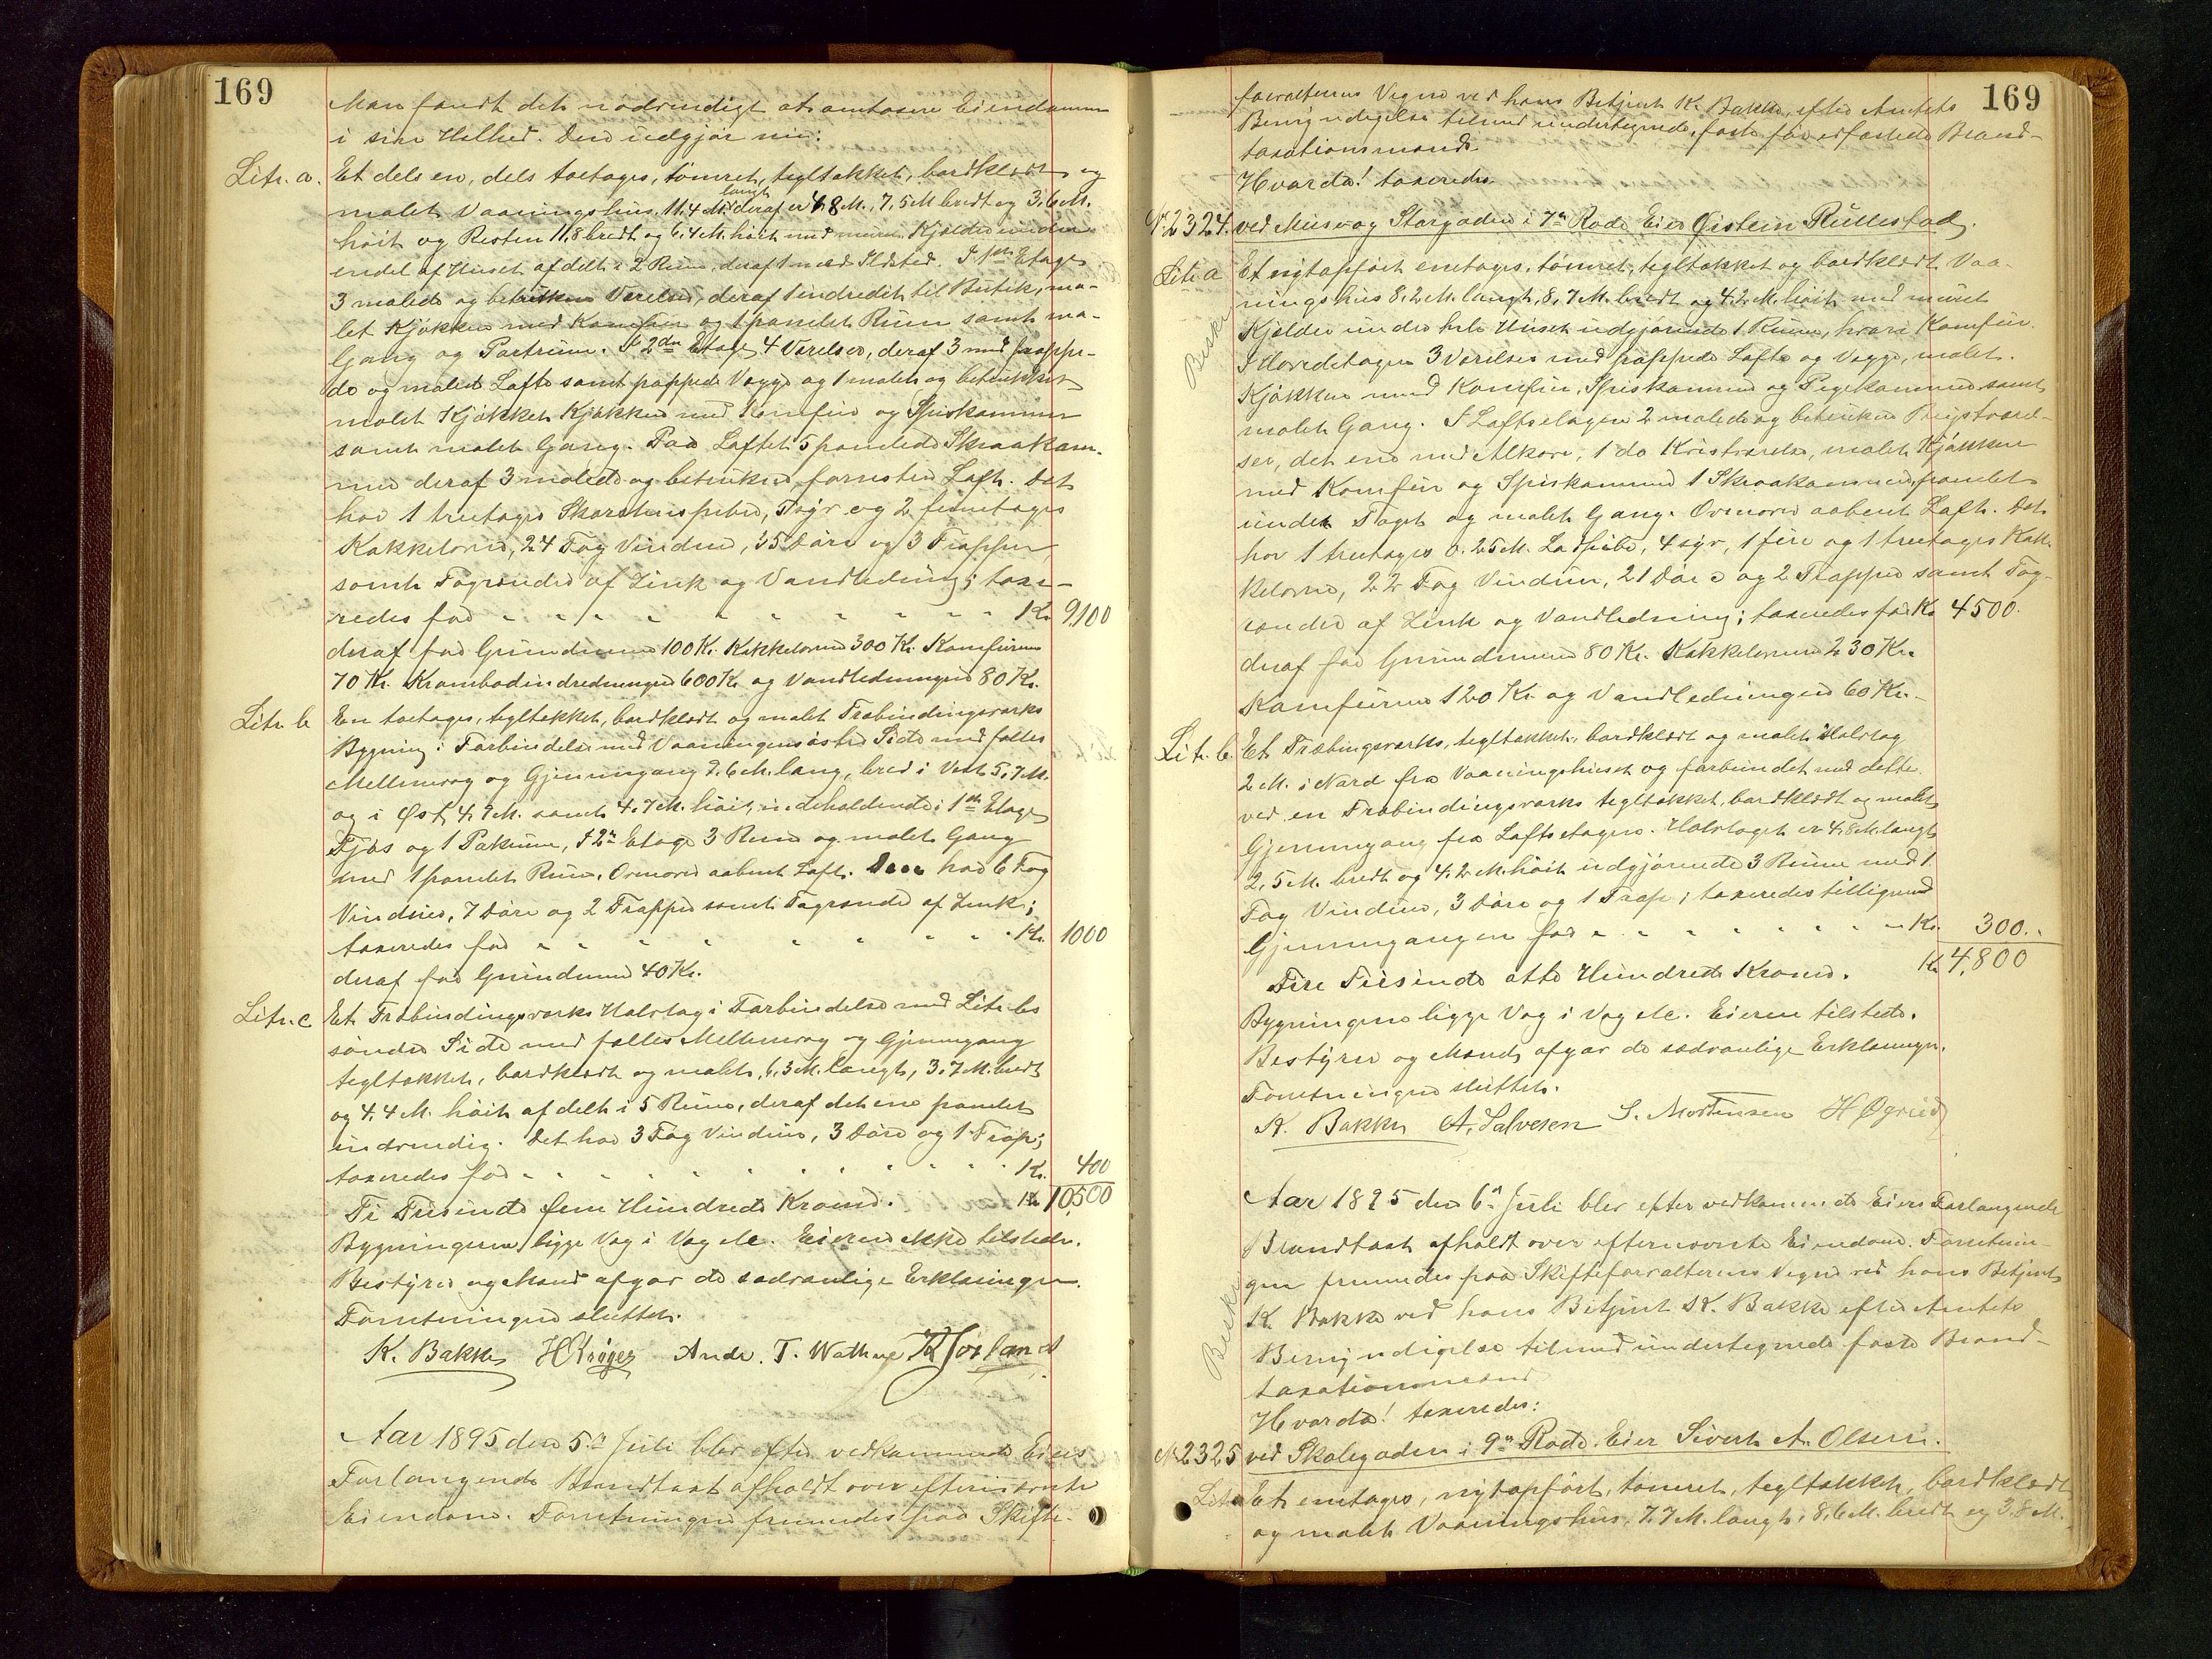 169
Man fandt det nødvendigt at omtaxere Eiendommen
i sin Helhed. Den udgjør nu:
Litr. a. Et dels en, dels toetages, tømret, tegltækket, bordklædt og
malet Vaaningshus, 11,4 M. langt deraf er 4,8 M., 7,5 M bredt og 3,6 M.
høit og Resten 11,8 bredt og 6,4 M. høit med muret Kjelder under
endel af Huset afdelt i 2 Rum, deraf 1 med Ildsted. I 1ste Etage
3 malede og betrukne Værelser, deraf 1 indredet til Butik, ma-
let Kjøkken med Komfur og 1 panelet Rum samt ma-
Gang og Portrum. I 2den Etage 4 Værelser, deraf 3 med pappe-
de og malede Lofte samt pappede Vægge og 1 malet og betrukket
malet Kjøkket Kjøkken med Komfur og Spiskammer
samt malet Gang. Paa Loftet 5 panelede Skraakam-
mer deraf 3 malede og betrukne, forresten Loft. Det
har 1 treetages Skorstenspibe, Fyr og 2 femetages
Kakkelovne, 24 Fag Vinduer, 35 Døre og 3 Trapper,
samt Tagrender af Zink og Vandledning; taxe-
redes for " " " " " " " " " Kr. 9,100
deraf for Grundmuren 100 Kr. Kakkelovnene 300 Kr. Komfurerne
70 Kr. Krambodindredningen 600 Kr og Vandledningen 80 Kr.
Litr. b En toetages, tegltækket, bordklædt og malet Træbindingsværks
Bygning i Forbindelse med Vaaningens østre Side med fælles
Mellemvæg og Gjennemgang 7,6 M. lang, bred i Vest 5,7 M.
og i Øst 4,7 M. samt 4,7 M. høit, indeholdende i 1ste Etage
Fjøs og 1 Pakrum, I 2n Etage 3 Rum og malet Gang
med 1 panelet Rum. Ovenover aabent Loft. Den har 6 Fag
Vinduer, 7 Døre og 2 Trapper samt Tagrender af Zink;
taxeredes for " " " " " " " " Kr. 1000
deraf for Grundmur 40 Kr.
Litr. c Et Træbindingsværks Halvtag i Forbindelse med Litr. bs
søndre Side med fælles Mellemvæg og Gjennemgang
tegltækket, bordklædt og malet, 6,3 M. langt, 3,7 M. bredt
og 4,4 M. høit afdelt i 5 Rum, deraf det ene panelet
indvendig. Det har 3 Fag Vinduer, 3 Døre og 1 Trap;
taxeredes for " " " " " " " " " Kr. 400
Ti Tusinde fem Hundrede Kroner. Kr 10,500
Bygningerne ligge Væg i Væg etc. Eieren ikke tilstede.
Bestyrer og Mænd afgav de sædvanlige Erklæringer.
Forretningen sluttet.
K. Bakke H Krøger Andr. T. Wathne
Aar 1895 den 5te Juli blev efter vedkommende Eiers
Forlangende Brandtaxt afholdt over efternævnte
Eiendom. Forretningen fremmedes paa Skifte-
169
forvalterens Vegne ved hans Betjent K. Bakke, efter Amtets
Bemyndigelse tilmed undertegnede, faste for edfæstede Brand-
taxationsmænd.
Hvorda! taxeredes
No 2324. ved Musvog Storgaden i 7n Rode, Eier Øistein Rullestad.
Litr. a Et nytopført enetages, tømret, tegltækket og bordklædt Vaa-
Beske
ningshus 8,2 M. langt, 8,7 M. bredt og 4,2 M. høit med muret
Kjelder under hele Huset udgjørende 1 Rum, hvori Komfur.
I Hovedetagen 3 Værelser med pappede Lofte og Vægge, malet.
Kjøkken med Komfur, Spiskammer og Pigekammer samt
malet Gang. I Loftsetagen 2 malede og betrukne Kvistværel-
ser, det ene med Alkove, 1 do Kvistværelse, malet Kjøkken
med Komfur og Spiskammer 1 Skraakammer, panelet
under Taget og malet Gang. Ovenover aabent Loft. Det
har 1 treetages 0.25 M. Ladpibe, 4 syv, 1 fire og 1 treetages Kak-
kelovne, 22 Fag Vinduer, 21 Døre og 2 Trapper samt Tag-
render af Zink og Vandledning; taxeredes for Kr 4500.
deraf for Grundmuren 80 Kr. Kakkelovnene 230 Kr.
Komfurerne 120 Kr. og Vandledningen 60 Kr.
Litr. b. Et Træbingsværks, tegltækket, bordklædt og malet Halvtag
2 M. i Nord fra Vaaningshuset og forbundet med dette
ved en Træbindingsværks tegltækket, bordklædt og malet
Gjennemgang fra Loftsetagen. Halvtaget er 4,8 M. langt
2,5 M. bredt og 4,2 M. høit udgjørende 3 Rum med 1
Fag Vinduer, 3 Døre og 1 Trap; taxeredes tilligemed
Gjennemgangen for " " " " " " " Kr. 300.
Fire Tusinde otte Hundrede Kroner. Kr 4,800
Bygningerne ligge Væg i Væg etc. Eieren tilstede.
Bestyrer og Mænd afgav de sædvanlige Erklæringer.
Forretningen sluttet.
K. Bakke A. Salvesen S. Mortensen H Øgreid
Aar 1895 den 6te Juli blev efter vedkommende Eiers Forlangende
Brandtaxt afholdt over efternævnte Eiendom. Forretnin-
gen fremmedes paa Skifteforvalterens Vegne ved hans Betjent
K. Bakke ved hans Betjent K. Bakke efter Amtets
Beske
Bemyndigelse tilmed undertegnede faste Brand-
taxationsmænd
Hvorda! taxeredes:
No 2325 ved Skolegaden i 9n Rode. Eier Sivert A. Olsen.
Litr a Et enetages, nytopført, tømret, tegltækket, bordklædt
og malet Vaaningshus, 7,7 M. langt, 8,6 M. bredt og 3,8 M.